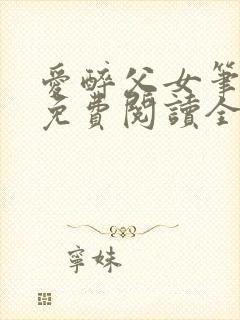 愛醉父女筆
免費閱讀全
寧妹